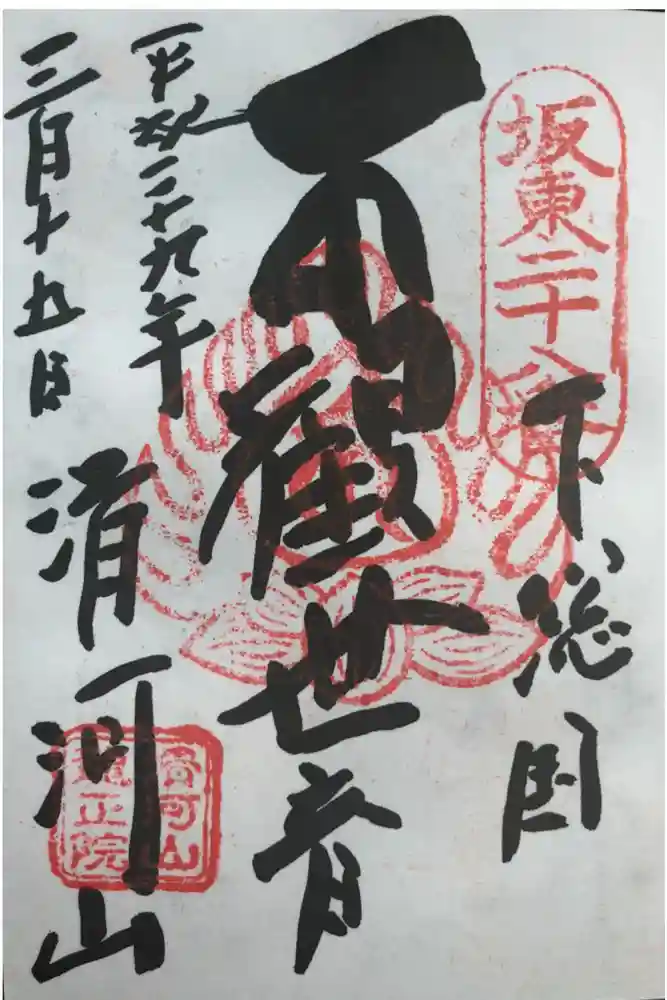 坂東二十八番
下総国
観世音
平成二十九年
三月十九日
滑河山
滑河山
龍正院